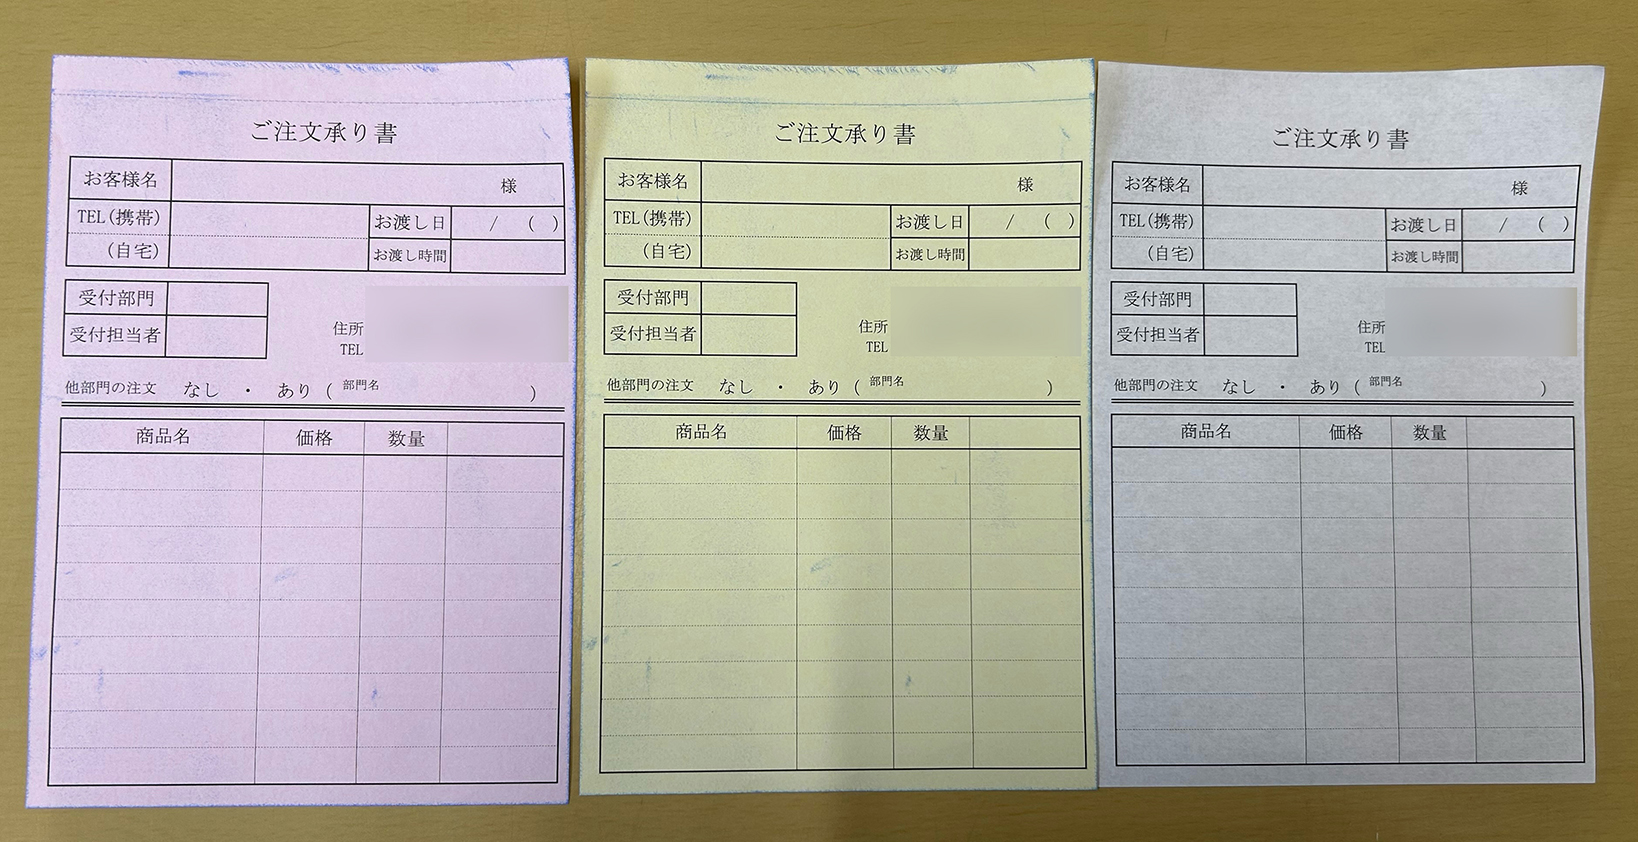 ご注文承り書
お客様名 様
TEL(携帯) お渡し日 / ( )
(自宅) お渡し時間
受付部門
受付担当者
住所
TEL
他部門の注文 なし ・ あり ( 部門名 )
商品名 価格 数量
ご注文承り書
お客様名 様
TEL(携帯) お渡し日 / ( )
(自宅) お渡し時間
受付部門
受付担当者
住所
TEL
他部門の注文 なし ・ あり ( 部門名 )
商品名 価格 数量
ご注文承り書
お客様名 様
TEL(携帯) お渡し日 / ( )
(自宅) お渡し時間
受付部門
受付担当者
住所
TEL
他部門の注文 なし ・ あり ( 部門名 )
商品名 価格 数量